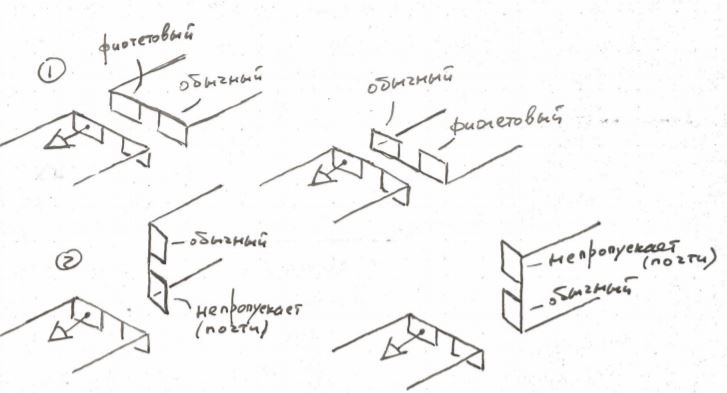 ①
фиолетовый
обычный
обычный
фиолетовый
②
обычный
непропускает
(почти)
непропускает
(почти)
обычный